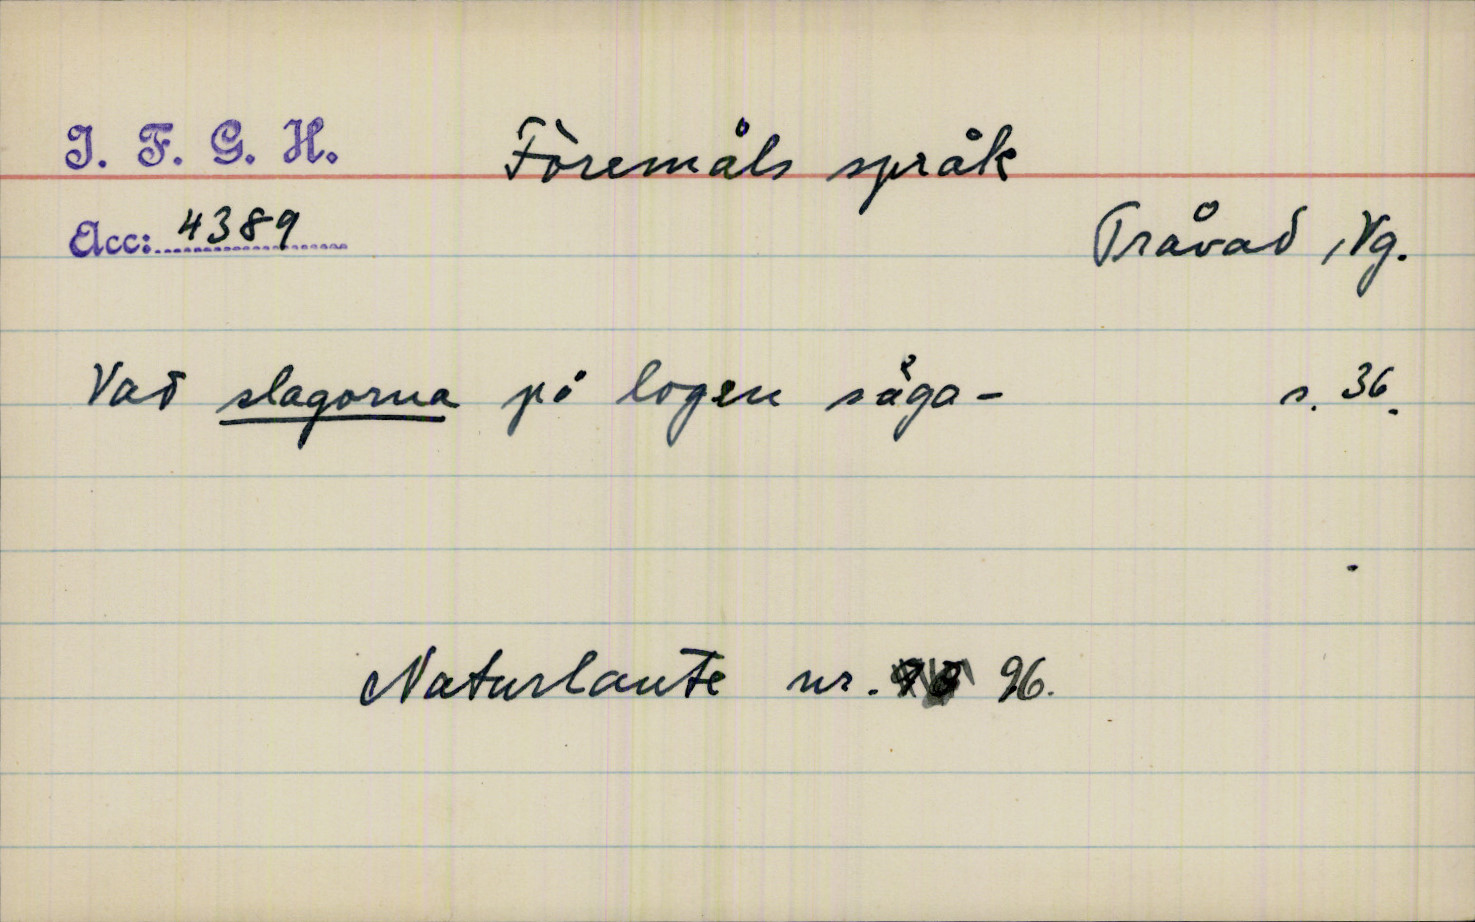 I. F. G. H. Föremåls språk
Acc: 4389 Tråvad, Vg.
Vad slagorna på logen säga – s. 36.
Naturlaute nr. 96.